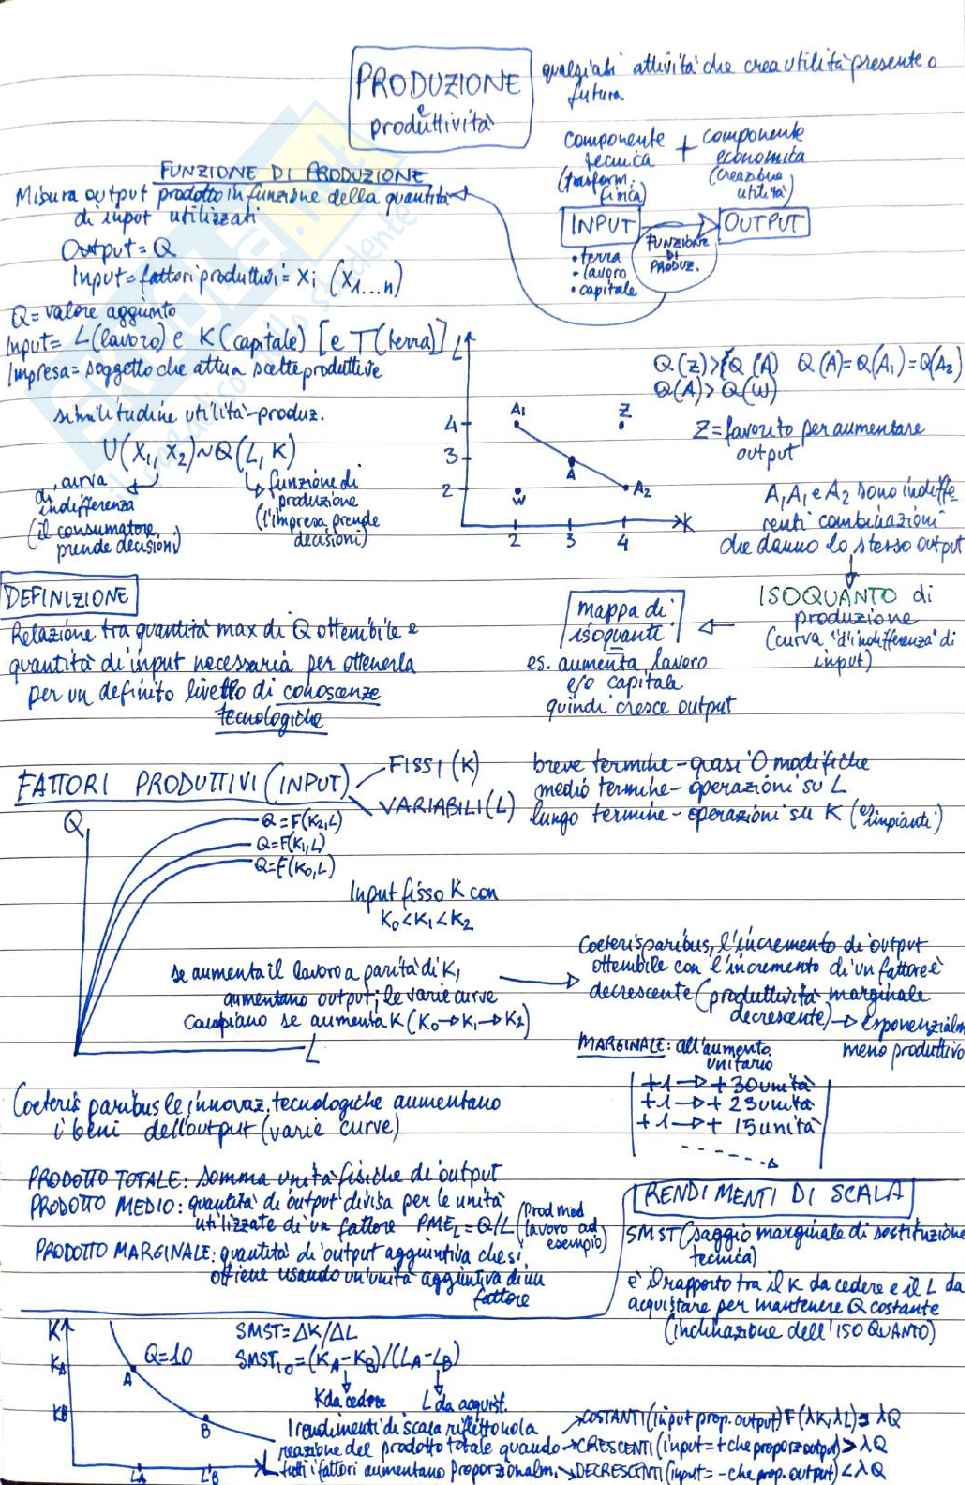 PRODUZIONE
e
produttività
qualsiasi attività che crea utilità presente o
futura
componente
tecnica
(trasform.
fisica)
+
componente
economica
(creazione
utilità)
INPUT
OUTPUT
FUNZIONE
DI
PRODUZ.
• terra
• lavoro
• capitale
FUNZIONE DI PRODUZIONE
Misura output prodotto in funzione della quantità
di input utilizzati
Output = Q
Input = fattori produttivi = Xi (X1...n)
Q = valore aggiunto
Input = L (lavoro) e K (capitale) [e T (terra)]
Impresa = soggetto che attua scelte produttive
similitudine utilità-produz.
U(X1, X2) ~ Q(L, K)
curva
di
indifferenza
(il consumatore
prende decisioni)
funzione di
produzione
(l'impresa prende
decisioni)
L
4
3
2
A1
Z
A
W
A2
2
3
4
K
Q(Z) > Q(A) Q(A) = Q(A1) = Q(A2)
Q(A) > Q(W)
Z = favorito per aumentare
output
A, A1 e A2 sono indiffe
renti combinazioni
che danno lo stesso output
ISOQUANTO di
produzione
(curva "d'indifferenza" di
input)
mappa di
isoquanti
es. aumenta lavoro
e/o capitale
quindi cresce output
DEFINIZIONE
Relazione tra quantità max di Q ottenibile e
quantità di input necessaria per ottenerla
per un definito livello di conoscenze
tecnologiche
FATTORI PRODUTTIVI (INPUT)
FISSI (K)
VARIABILI (L)
breve termine - quasi 0 modifiche
medio termine - operazioni su L
lungo termine - operazioni su K (es. impianti)
Q
Q=F(K2,L)
Q=F(K1,L)
Q=F(K0,L)
Input fisso K con
K0<K1<K2
se aumenta il lavoro a parità di K,
aumentano output; le varie curve
cambiano se aumenta K (K0→K1→K2)
L
Coeteris paribus, l'incremento di output
ottenibile con l'incremento di un fattore è
decrescente (produttività marginale
decrescente) → esponenzialm
meno produttivo
MARGINALE: all'aumento
unitario
+1 → + 30 unità
+1 → + 23 unità
+1 → + 15 unità
Coeteris paribus le innovaz. tecnologiche aumentano
i beni dell'output (varie curve)
PRODOTTO TOTALE: somma unità fisiche di output
PRODOTTO MEDIO: quantità di output divisa per le unità
utilizzate di un fattore PMEL = Q/L
(Prod med
lavoro ad
esempio)
PRODOTTO MARGINALE: quantità di output aggiuntiva che si
ottiene usando un'unità aggiuntiva di un
fattore
RENDIMENTI DI SCALA
SMST (saggio marginale di sostituzione
tecnica)
è il rapporto tra il K da cedere e il L da
acquistare per mantenere Q costante
(inclinazione dell'ISOQUANTO)
K
KA
KB
A
Q=10
B
LA
LB
L
SMST = ΔK/ΔL
SMST10 = (KA-KB)/(LA-LB)
K da cedere
L da acquist.
I rendimenti di scala riflettono la
reazione del prodotto totale quando
tutti i fattori aumentano proporzionalm.
COSTANTI (input prop. output) F(λK, λL) = λQ
CRESCENTI (input = + che proporz output) > λQ
DECRESCENTI (input = - che prop. output) < λQ